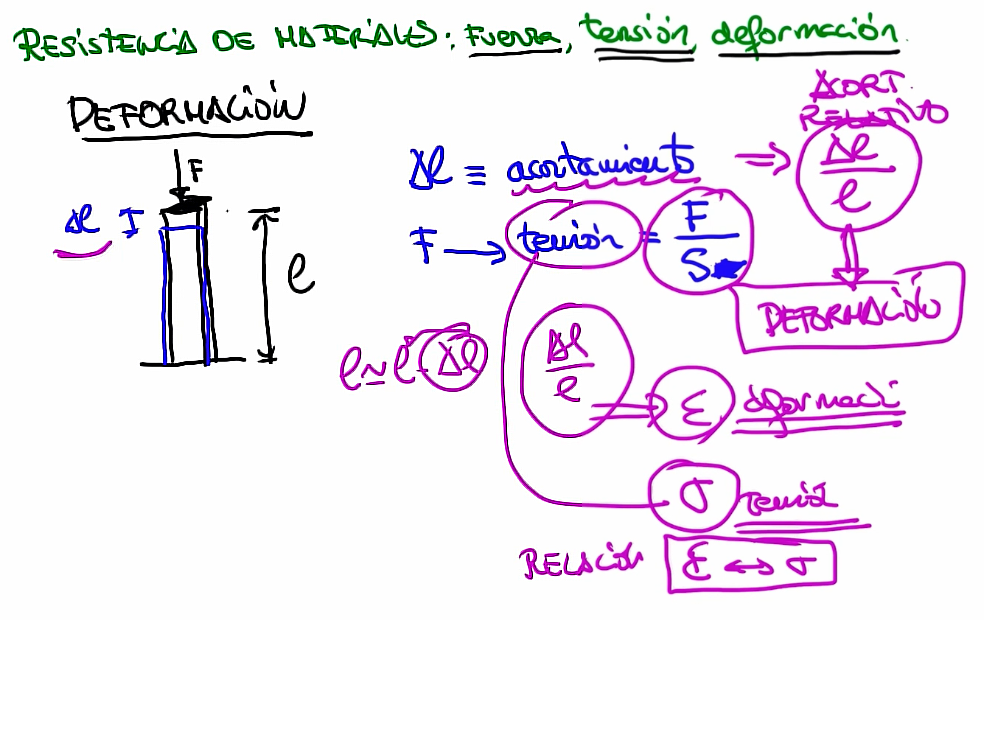 RESISTENCIA DE MATERIALES: FUERZA, tensión, deformación.
DEFORMACIÓN
F
Δl
l
ACORT
RELATIVO
Δl ≡ acortamiento ⇒ Δl/l
F → tensión = F/S
DEFORMACIÓN
Δl/l ⇒ ε deformaci
σ tensión
RELACIÓN ε ↔ σ